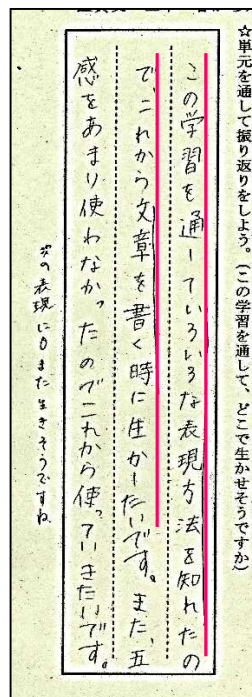 ☆単元を通して振り返りをしよう。(この学習を通して、どこで生かせそうですか)
この学習を通していろいろな表現方法を知れたの
で、これから文章を書く時に生かしたいです。また、五
感をあまり使わなかったのでこれから使っていきたいです。
の表現にもまた生きそうですね。